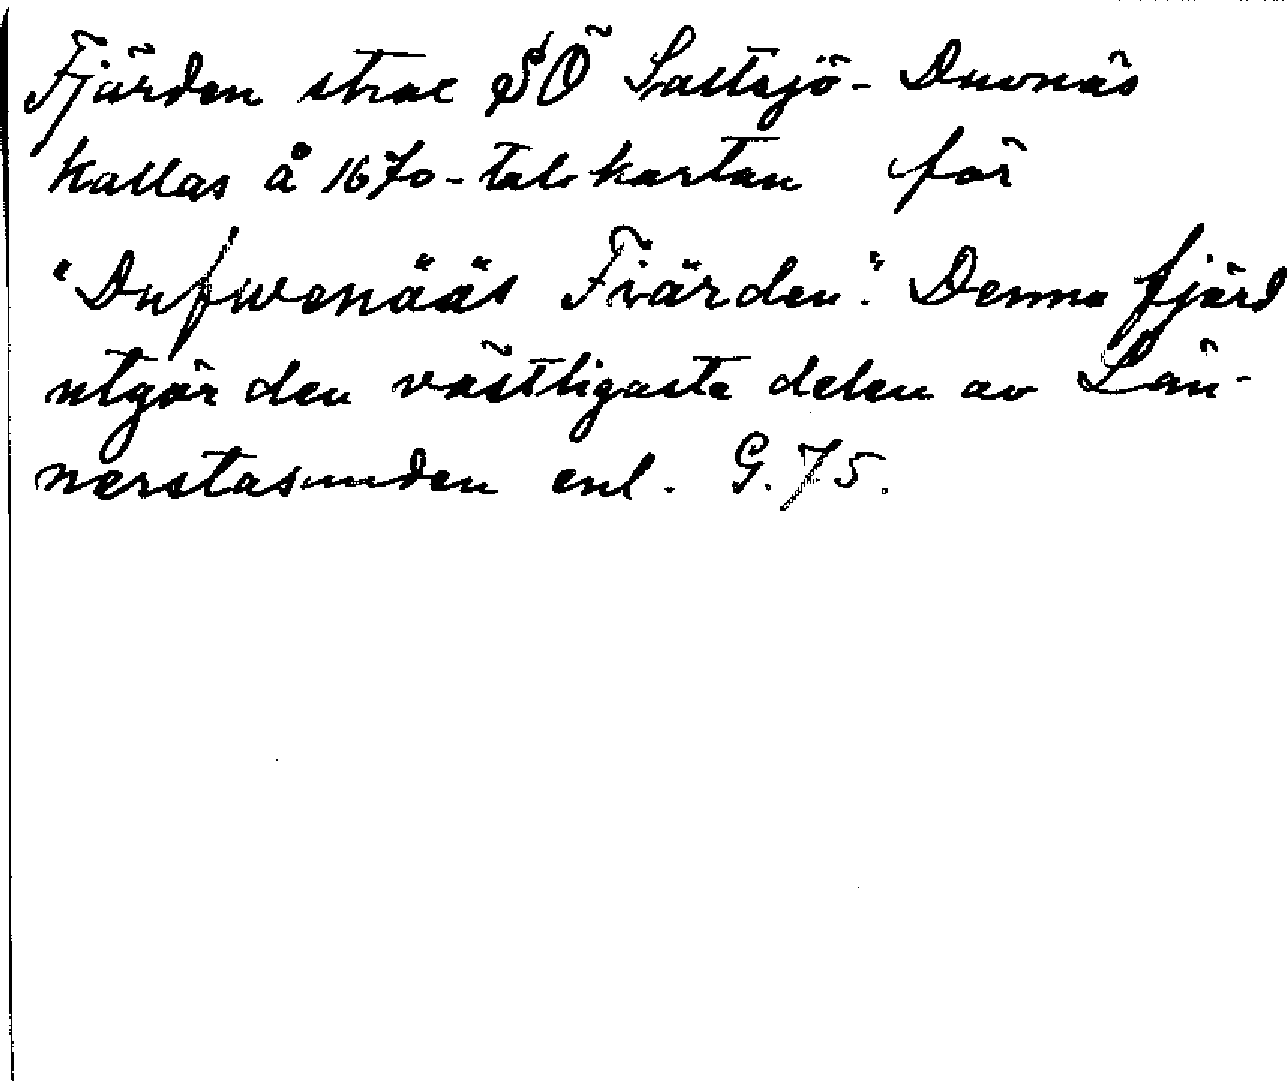 Fjärden strax SÖ Saltsjö-Duvnäs
kallas å 1670-talskartan för
"Dufwenääs Fiärden". Denna fjärd
utgör den västligaste delen av Län-
nerstasunden enl. G. 75.